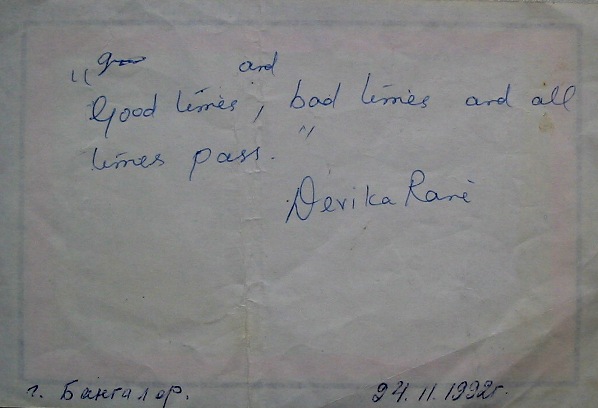 and
"Good times, bad times and all
times pass."
Devika Rani
г. Бангалор.
24.11.1992г.